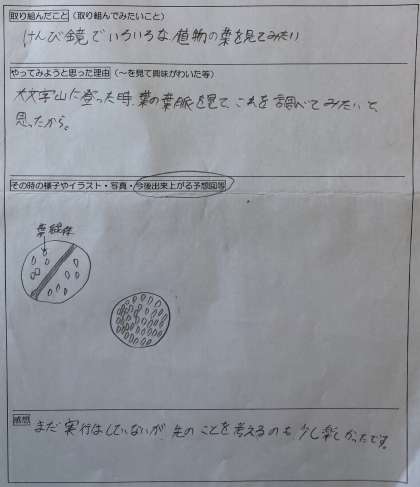 取り組んだこと（取り組んでみたいこと）
けんび鏡でいろいろな植物の葉を見てみたい
やってみようと思った理由（〜を見て興味がわいた等）
大文字山に登った時、葉の葉脈を見て、これを調べてみたいと、
思ったから。
その時の様子やイラスト・写真・今後出来上がる予想図等
葉緑体
感想
まだ実行はしていないが、先のことを考えるのも少し楽しかったです。